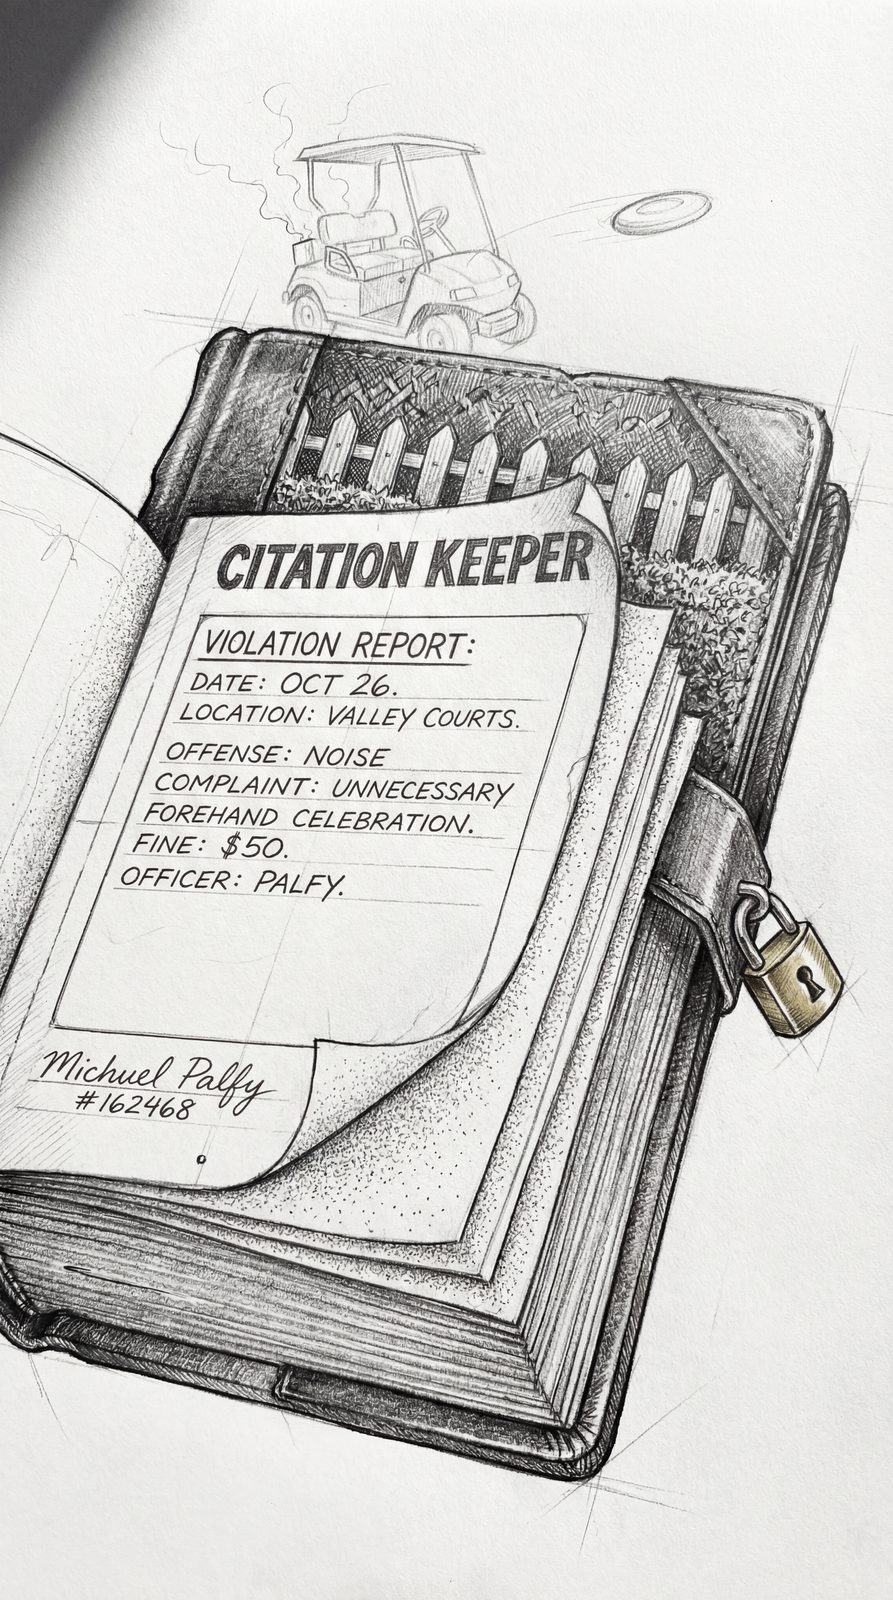 CITATION KEEPER
VIOLATION REPORT:
DATE: OCT 26.
LOCATION: VALLEY COURTS.
OFFENSE: NOISE
COMPLAINT: UNNECESSARY
FOREHAND CELEBRATION.
FINE: $50.
OFFICER: PALFY.
Michuel Palfy
#162468